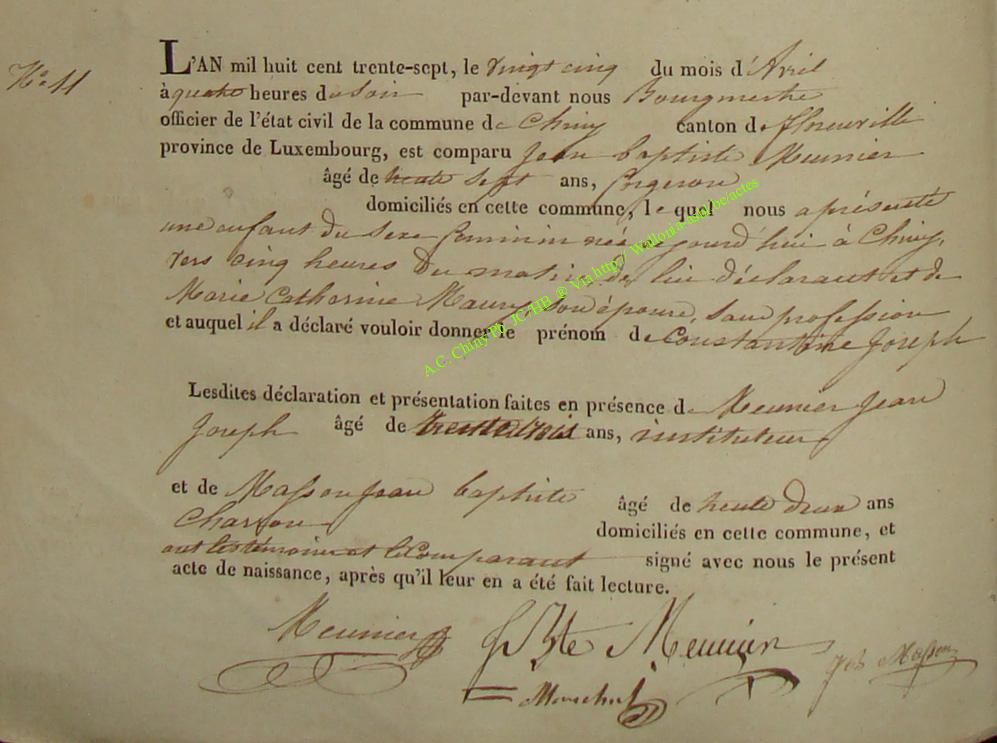 No 11
L'AN mil huit cent trente-sept, le vingt cinq du mois d'Avril
à quatre heures du soir par-devant nous Bourgmestre
officier de l'état civil de la commune de Chiny canton de florenville
province de Luxembourg, est comparu Jean baptiste Meunier
âgé de trente sept ans, forgeron
domiciliés en cette commune, lequel nous a présenté
une enfant du sexe feminin née ce jourd'hui à Chiny,
vers cinq heures du matin, de lui déclarant et de
Marie Catherine Maury, son épouse, sans profession
et auquel il a déclaré vouloir donner le prénom de Constantine Joseph
Lesdites déclaration et présentation faites en présence de Meunier Jean
Joseph âgé de trente trois ans, instituteur
et de Masson Jean baptiste âgé de trente deux ans
Charron domiciliés en cette commune, et
ont les témoins et le Comparant signé avec nous le présent
acte de naissance, après qu'il leur en a été fait lecture.
Meunier J Bte Meunier Masson
Marechal
A.C. Chiny Ph. JC HB @ Via http// Wallonia-asbl/be/actes